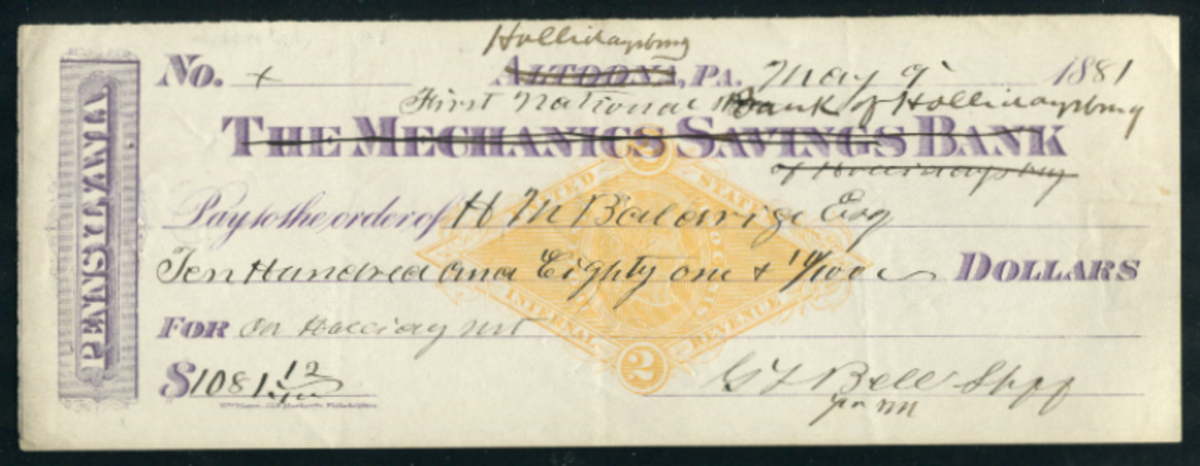 Hollidaysburg
No. + ALTOONA, PA. May 9 1881
First National Bank of Hollidaysburg
THE MECHANICS SAVINGS BANK
of Hollidaysburg
Pay to the order of H M Baldrige Esq
Ten Hundred and Eighty one & DOLLARS
FOR on
$1081 12/100
G F Bell Shff
PENNSYLVANIA
UNITED STATES
INTERNAL REVENUE
2
2